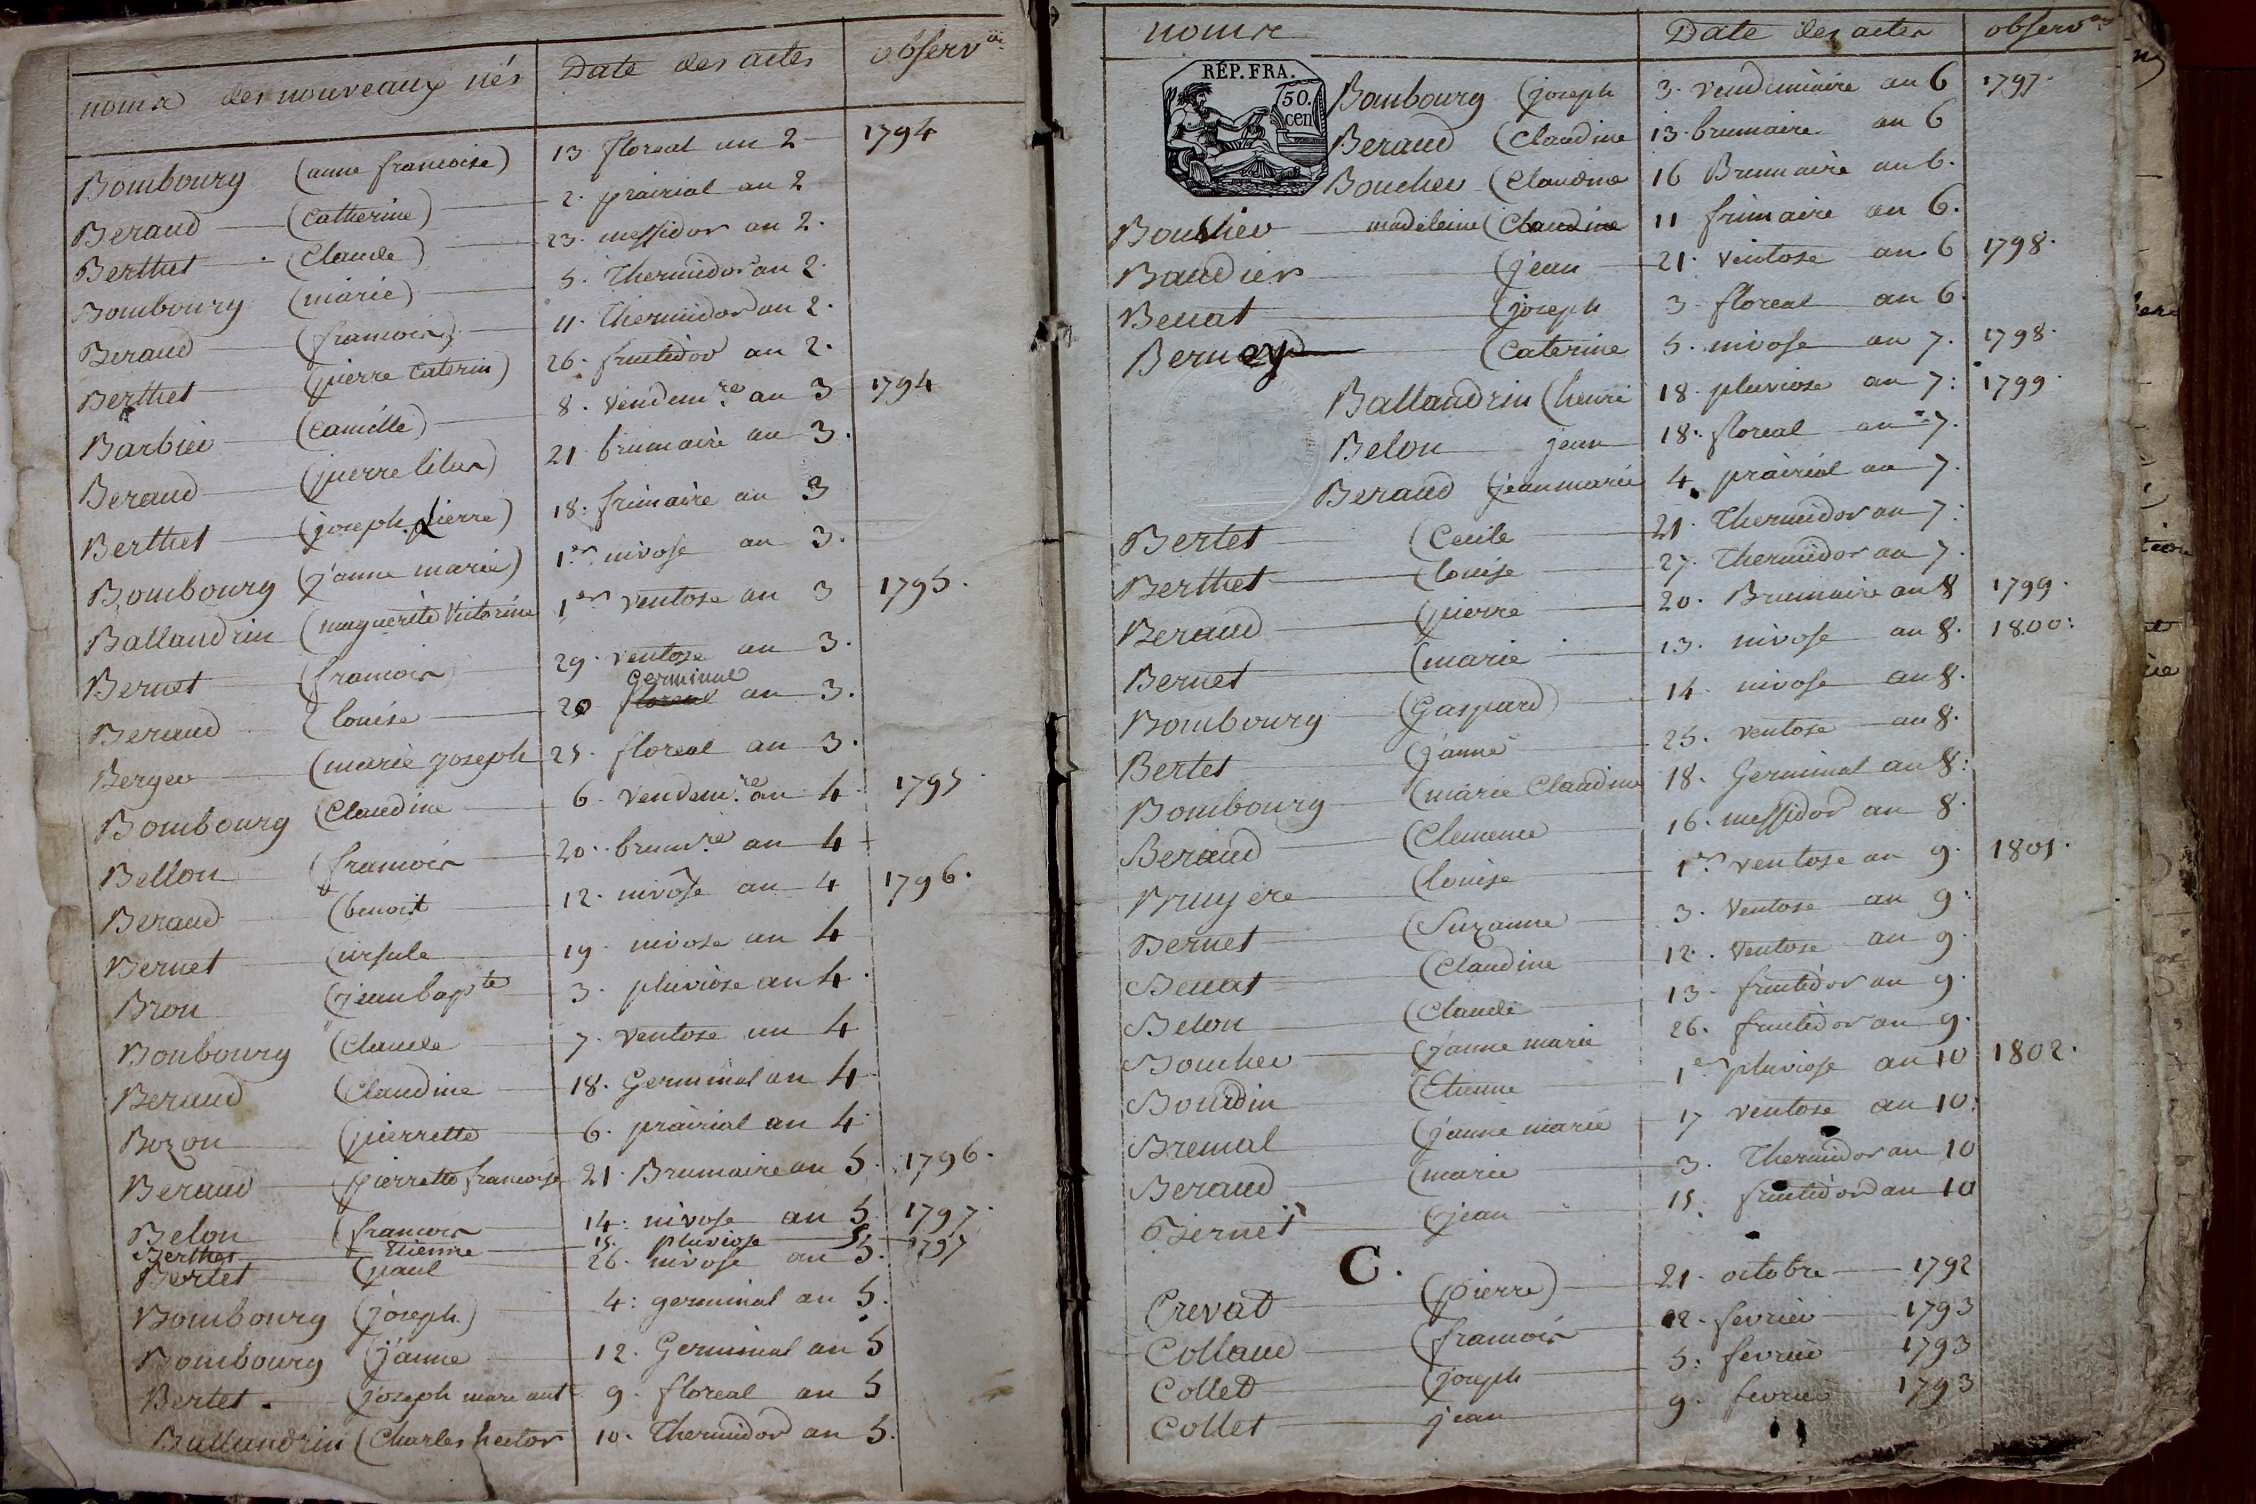 noms des nouveaux nés Date des actes observ.on
Bombourg (anne francoise) 13 floreal an 2 1794
Beraud (Catherine) 2. prairial an 2
Berthet (Claude) 23. messidor an 2.
Bombourg (marie) 5. Thermidor an 2.
Beraud (francois) 11. Thermidor an 2.
Berthet (pierre Caterin) 26. fructidor an 2.
Barbier (Camille) 8. vendem.re an 3 1794
Beraud (pierre 21 brumaire an 3.
Berthet (joseph pierre) 18. frimaire an 3
Bombourg (janne marie) 1.er nivose an 3.
Ballandrin (marguerite Victorine 1er ventose an 3 1795.
Bernet (francois 29. ventose an 3.
germinal
Beraud (louise 20 floreal an 3.
Berger (marie joseph 25. floreal an 3.
Bombourg (Claudine 6. vendem.re an 4 1795.
Bellon (francois 20. brum.re an 4
Beraud (benoit 12. nivose an 4 1796.
Bernet (ursule 19. nivose an 4
Bron (jean bapte 3. pluviose an 4.
Bonbourg (Claude 7. ventose an 4
Beraud (Claudine 18. Germinal an 4
Bozon (pierrette 6. prairial an 4
Beraud (pierrette francoise 21. Brumaire an 5. 1796.
Belon (francois 14. nivose an 5 1797.
Berthet Etienne 15. pluviose 5 1797
Bertet (paul 26. nivose an 5.
Bombourg (joseph) 4. germinal an 5.
Bombourg (janne 12. Germinal an 5
Bertet. (joseph marc ant 9. floreal an 5
Ballandrin (Charles hector 10. Thermidor an 5.
noms Date des actes observ.on
RÉP. FRA.
50.
cen
Bombourg (joseph 3. vendemiaire an 6 1797.
Beraud (Claudine 13. brumaire an 6
Boucher (Claudine 16 Brumaire an 6.
Bouchier madeleine (Claudine 11 frimaire an 6.
Baudier (jean 21. ventose an 6 1798.
Benat (joseph 3. floreal an 6.
Berney (Caterine 5. nivose an 7. 1798.
Ballandrin (henri 18. pluviose an 7. 1799.
Belon jean 18. floreal an 7.
Beraud (jean marie 4. prairial an 7.
Bertet (Cecile 21. Thermidor an 7.
Berthet (louise 27. Thermidor an 7.
Beraud (pierre 20. Brumaire an 8 1799.
Bernet (marie 13. nivose an 8. 1800.
Bombourg (Gaspard) 14. nivose an 8.
Bertet (janne 25. ventose an 8.
Bombourg (marie Claudine 18. Germinal an 8.
Beraud (Clemence 16. messidor an 8.
Bruyere (louise 1.er ventose an 9. 1801.
Bernet (Suzanne 3. Ventose an 9.
Benat (Claudine 12. Ventose an 9
Belon (Claude 13. fructidor an 9.
Boucher (janne marie 26. fructidor an 9.
Bourdin (Etienne 1er pluviose an 10 1802.
Bremal (janne marie 17 ventose an 10.
Beraud (marie 3. Thermidor an 10
Bernet (jean 15. fructidor an 10
C.
Crevat (pierre) 21. octobre 1792
Collaud (francois 12. fevrier 1793
Collet (joseph 5. fevrier 1793
Collet jean 9. fevrier 1793